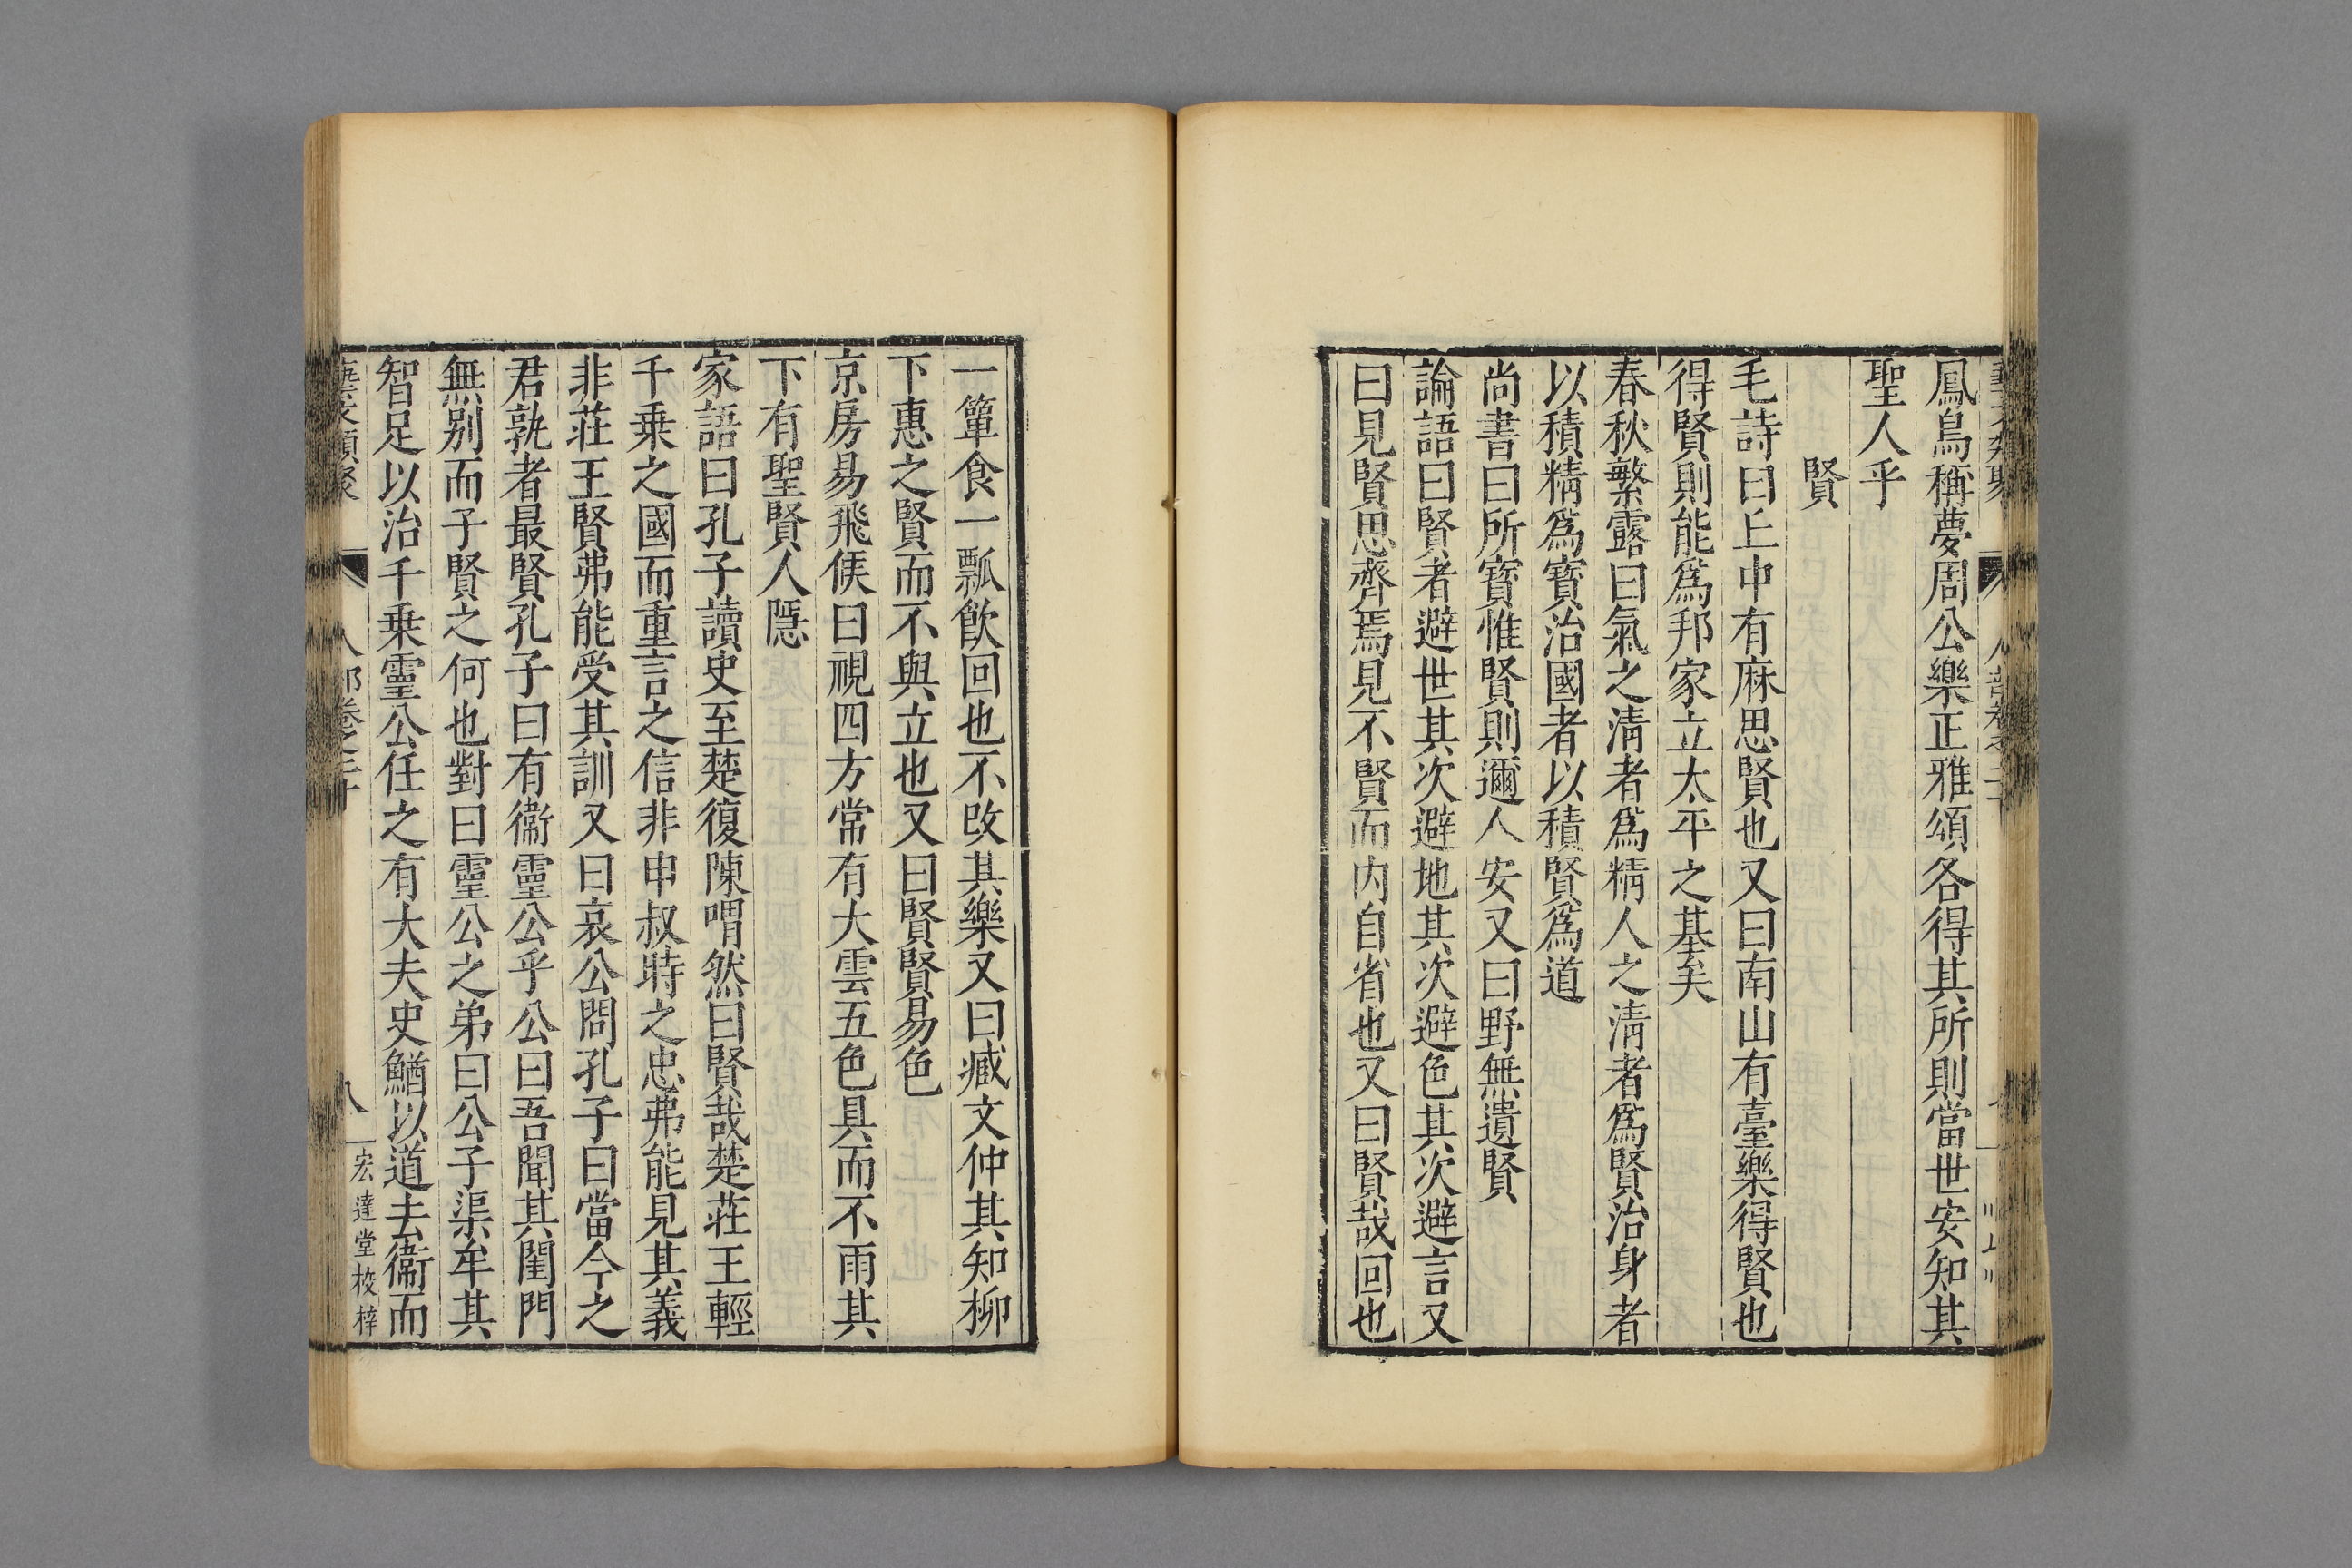 鳳鳥稱夢周公樂正雅頌各得其所則當世安知其
聖人乎
賢
毛詩曰丘中有麻思賢也又曰南山有臺樂得賢也
得賢則能爲邦家立太平之基矣
春秋繁露曰氣之淸者爲精人之淸者爲賢治身者
以積精爲寶治國者以積賢爲道
尚書曰所寶惟賢則邇人安又曰野無遺賢
論語曰賢者避世其次避地其次避色其次避言又
曰見賢思齊焉見不賢而内自省也又曰賢哉回也
一簞食一瓢飲回也不改其樂又曰臧文仲其知柳
下惠之賢而不與立也又曰賢賢易色
京房易飛候曰視四方常有大雲五色具而不雨其
下有聖賢人隱
家語曰孔子讀史至楚復陳喟然曰賢哉楚莊王輕
千乗之國而重言之信非申叔時之忠弗能見其義
非莊王賢弗能受其訓又曰哀公問孔子曰當今之
君孰者最賢孔子曰有衞靈公乎公曰吾聞其閨門
無别而子賢之何也對曰靈公之弟曰公子渠牟其
智足以治千乗靈公任之有大夫史鰌以道去衞而
藝文類聚
人部卷之二十
八
宏達堂校梓